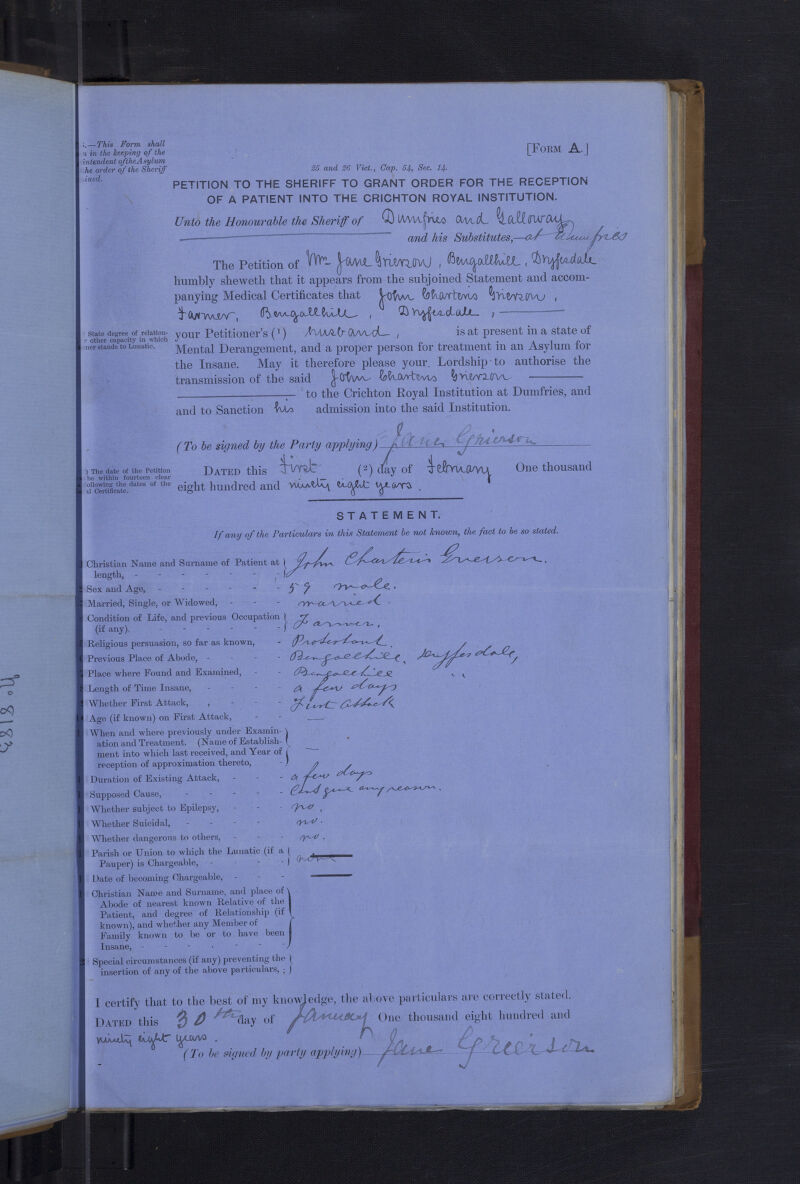 [FORM A.]
.—This Form shall
in the keeping of the
intendent of the Asylum
he order of the Sheriff
ined.
25 and 26 Vict., Cap. 54, Sec. 14.
PETITION TO THE SHERIFF TO GRANT ORDER FOR THE RECEPTION
OF A PATIENT INTO THE CRICHTON ROYAL INSTITUTION.
Unto the Honourable the Sheriff of Dumfries and Galloway
and his Substitutes,—at Dumfries
The Petition of Mrs Jane Grierson, Bengallhill, Dryfesdale
humbly sheweth that it appears from the subjoined Statement and accom-
panying Medical Certificates that John Charteris Grierson,
Farmer, Bengallhill, Dryfesdale,
State degree of relation-
r other capacity in which
ner stands to Lunatic.
your Petitioner's (1) husband, is at present in a state of
Mental Derangement, and a proper person for treatment in an Asylum for
the Insane. May it therefore please your Lordship to authorise the
transmission of the said John Charteris Grierson
to the Crichton Royal Institution at Dumfries, and
and to Sanction his admission into the said Institution.
(To be signed by the Party applying) Jane Grierson
) The date of the Petition
be within fourteen clear
following the dates of the
al Certificate.
DATED this First (2) day of February One thousand
eight hundred and ninety eight years.
STATEMENT.
If any of the Particulars in this Statement be not known, the fact to be so stated.
Christian Name and Surname of Patient at
length, - John Charteris Grierson.
Sex and Age, - 59 male.
Married, Single, or Widowed, - married.
Condition of Life, and previous Occupation
(if any). - Farmer.
Religious persuasion, so far as known, - Protestant.
Previous Place of Abode, - Bengallhill, Dryfesdale,
Place where Found and Examined, - Bengallhill ,,
Length of Time Insane, - a few days
Whether First Attack, - First Attack
Age (if known) on First Attack, —
When and where previously under Examin-
ation and Treatment. (Name of Establish-
ment into which last received, and Year of
reception of approximation thereto, - —
Duration of Existing Attack, - a few days
Supposed Cause, - Cant give any reason.
Whether subject to Epilepsy, - no.
Whether Suicidal, - no.
Whether dangerous to others, - no.
Parish or Union to which the Lunatic (if a
Pauper) is Chargeable, - none
Date of becoming Chargeable, - —
Christian Name and Surname, and place of
Abode of nearest known Relative of the
Patient, and degree of Relationship (if
known), and whether any Member of
Family known to be or to have been
Insane, -
Special circumstances (if any) preventing the
insertion of any of the above particulars, :
I certify that to the best of my knowledge, the above particulars are correctly stated.
DATED this 30th day of January One thousand eight hundred and
ninety eight years.
(To be signed by party applying) Jane Grierson